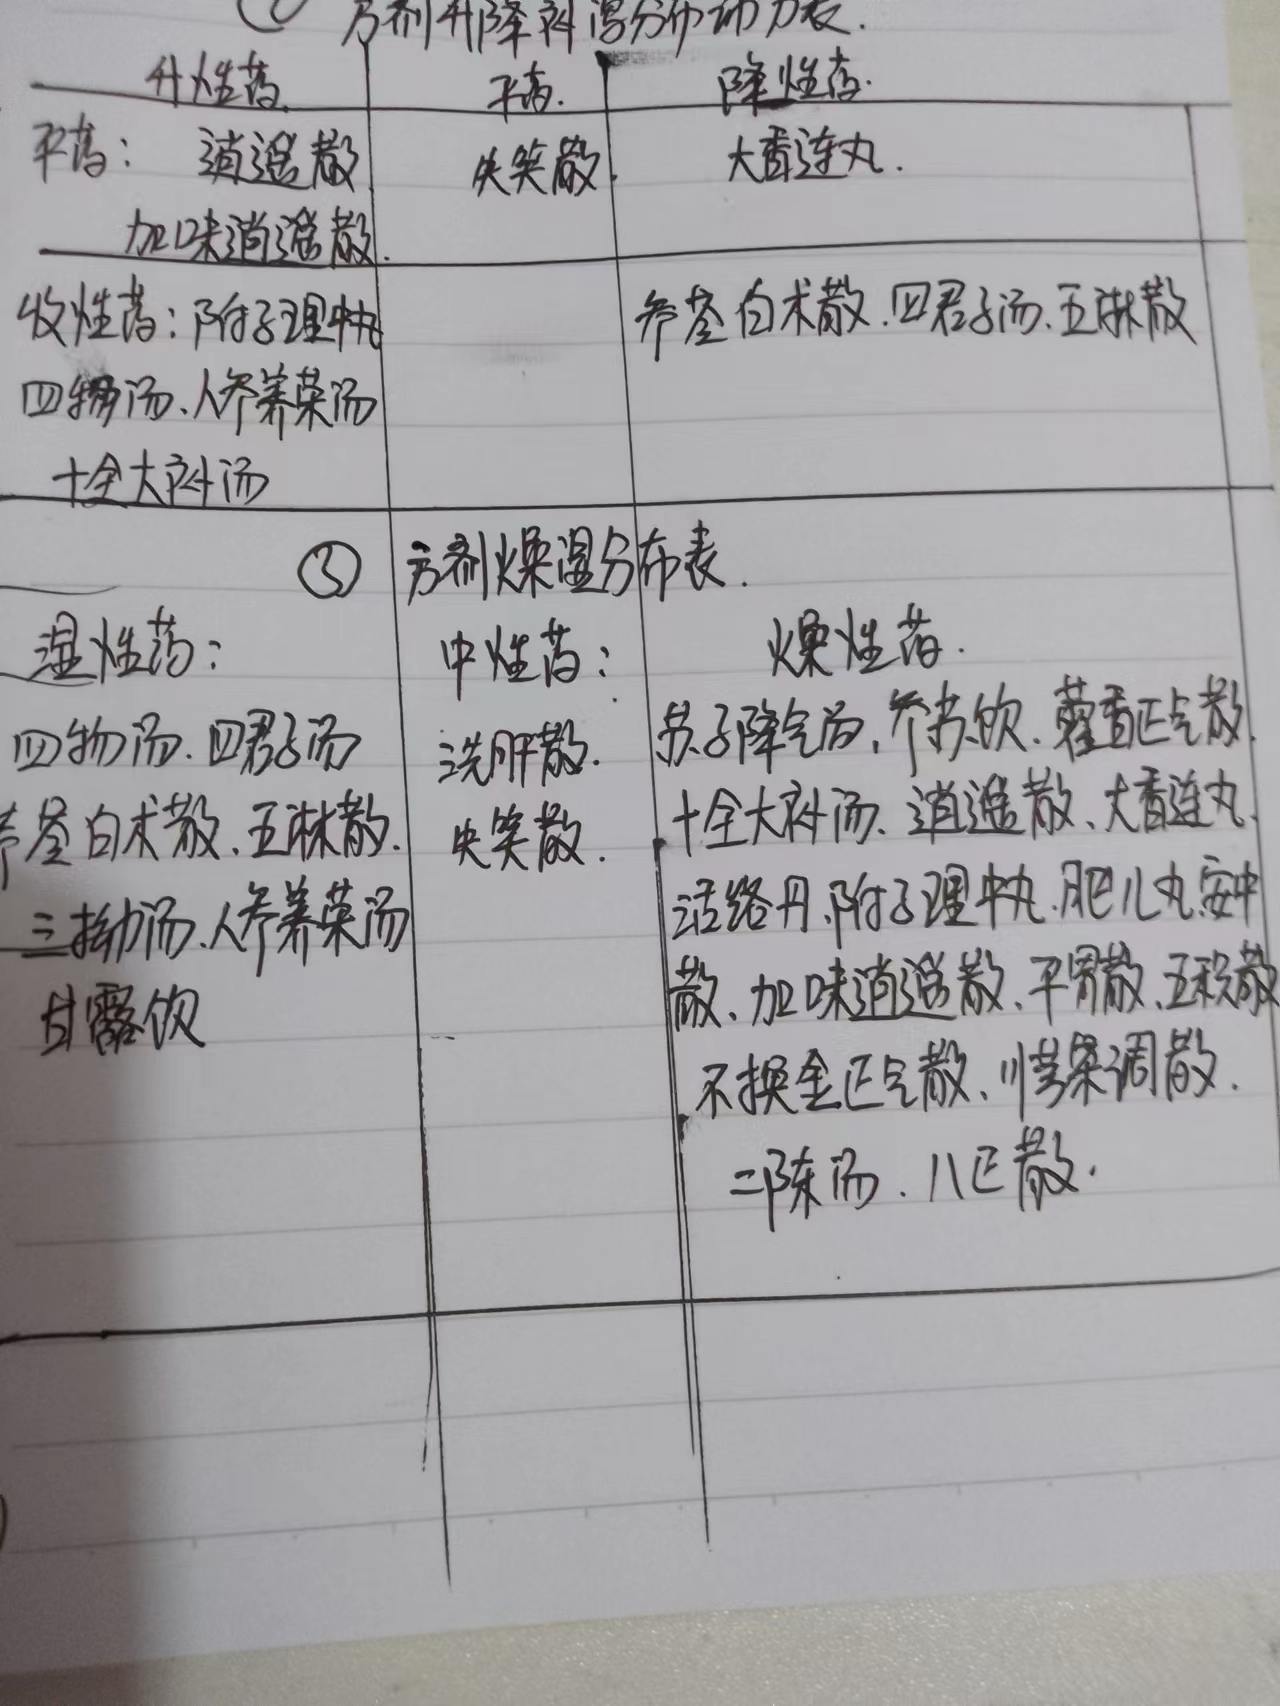 方剂升降补泻分布动力表.
升性药 平药. 降性药.
平药： 逍遥散 失笑散. 大香连丸.
加味逍遥散.
收性药：附子理中丸 参苓白术散.四君子汤、五淋散
四物汤、人参养荣汤
十全大补汤
③ 方剂燥湿分布表.
湿性药： 中性药： 燥性药.
四物汤.四君子汤 洗肝散. 苏子降气汤,参苏饮.藿香正气散.
苓白术散、五淋散. 失笑散. 十全大补汤、逍遥散、大香连丸.
三拗汤、人参养荣汤 活络丹、附子理中丸.肥儿丸.安中
甘露饮 散、加味逍遥散、平胃散、五积散
不换金正气散、川芎茶调散.
二陈汤、八正散.